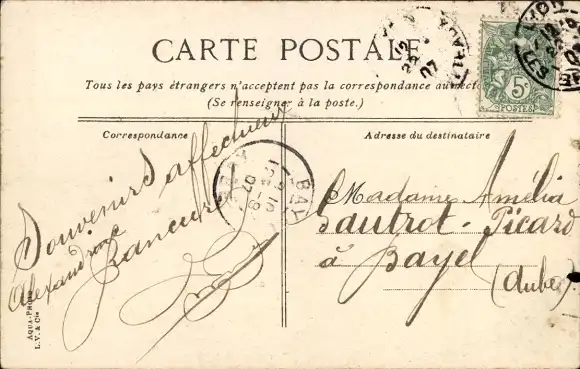 CARTE POSTALE
Tous les pays étrangers n'acceptent pas la correspondance au
(Se renseigner à la poste.)
Correspondance
Souvenirs affectueux
Alexandrine
AQUA-PHOT.
L. V. & Cie
Adresse du destinataire
Madame Amélia
Gautrot-Picard
à Bayel
(Aube)
5c
POSTES
07
07
BAY